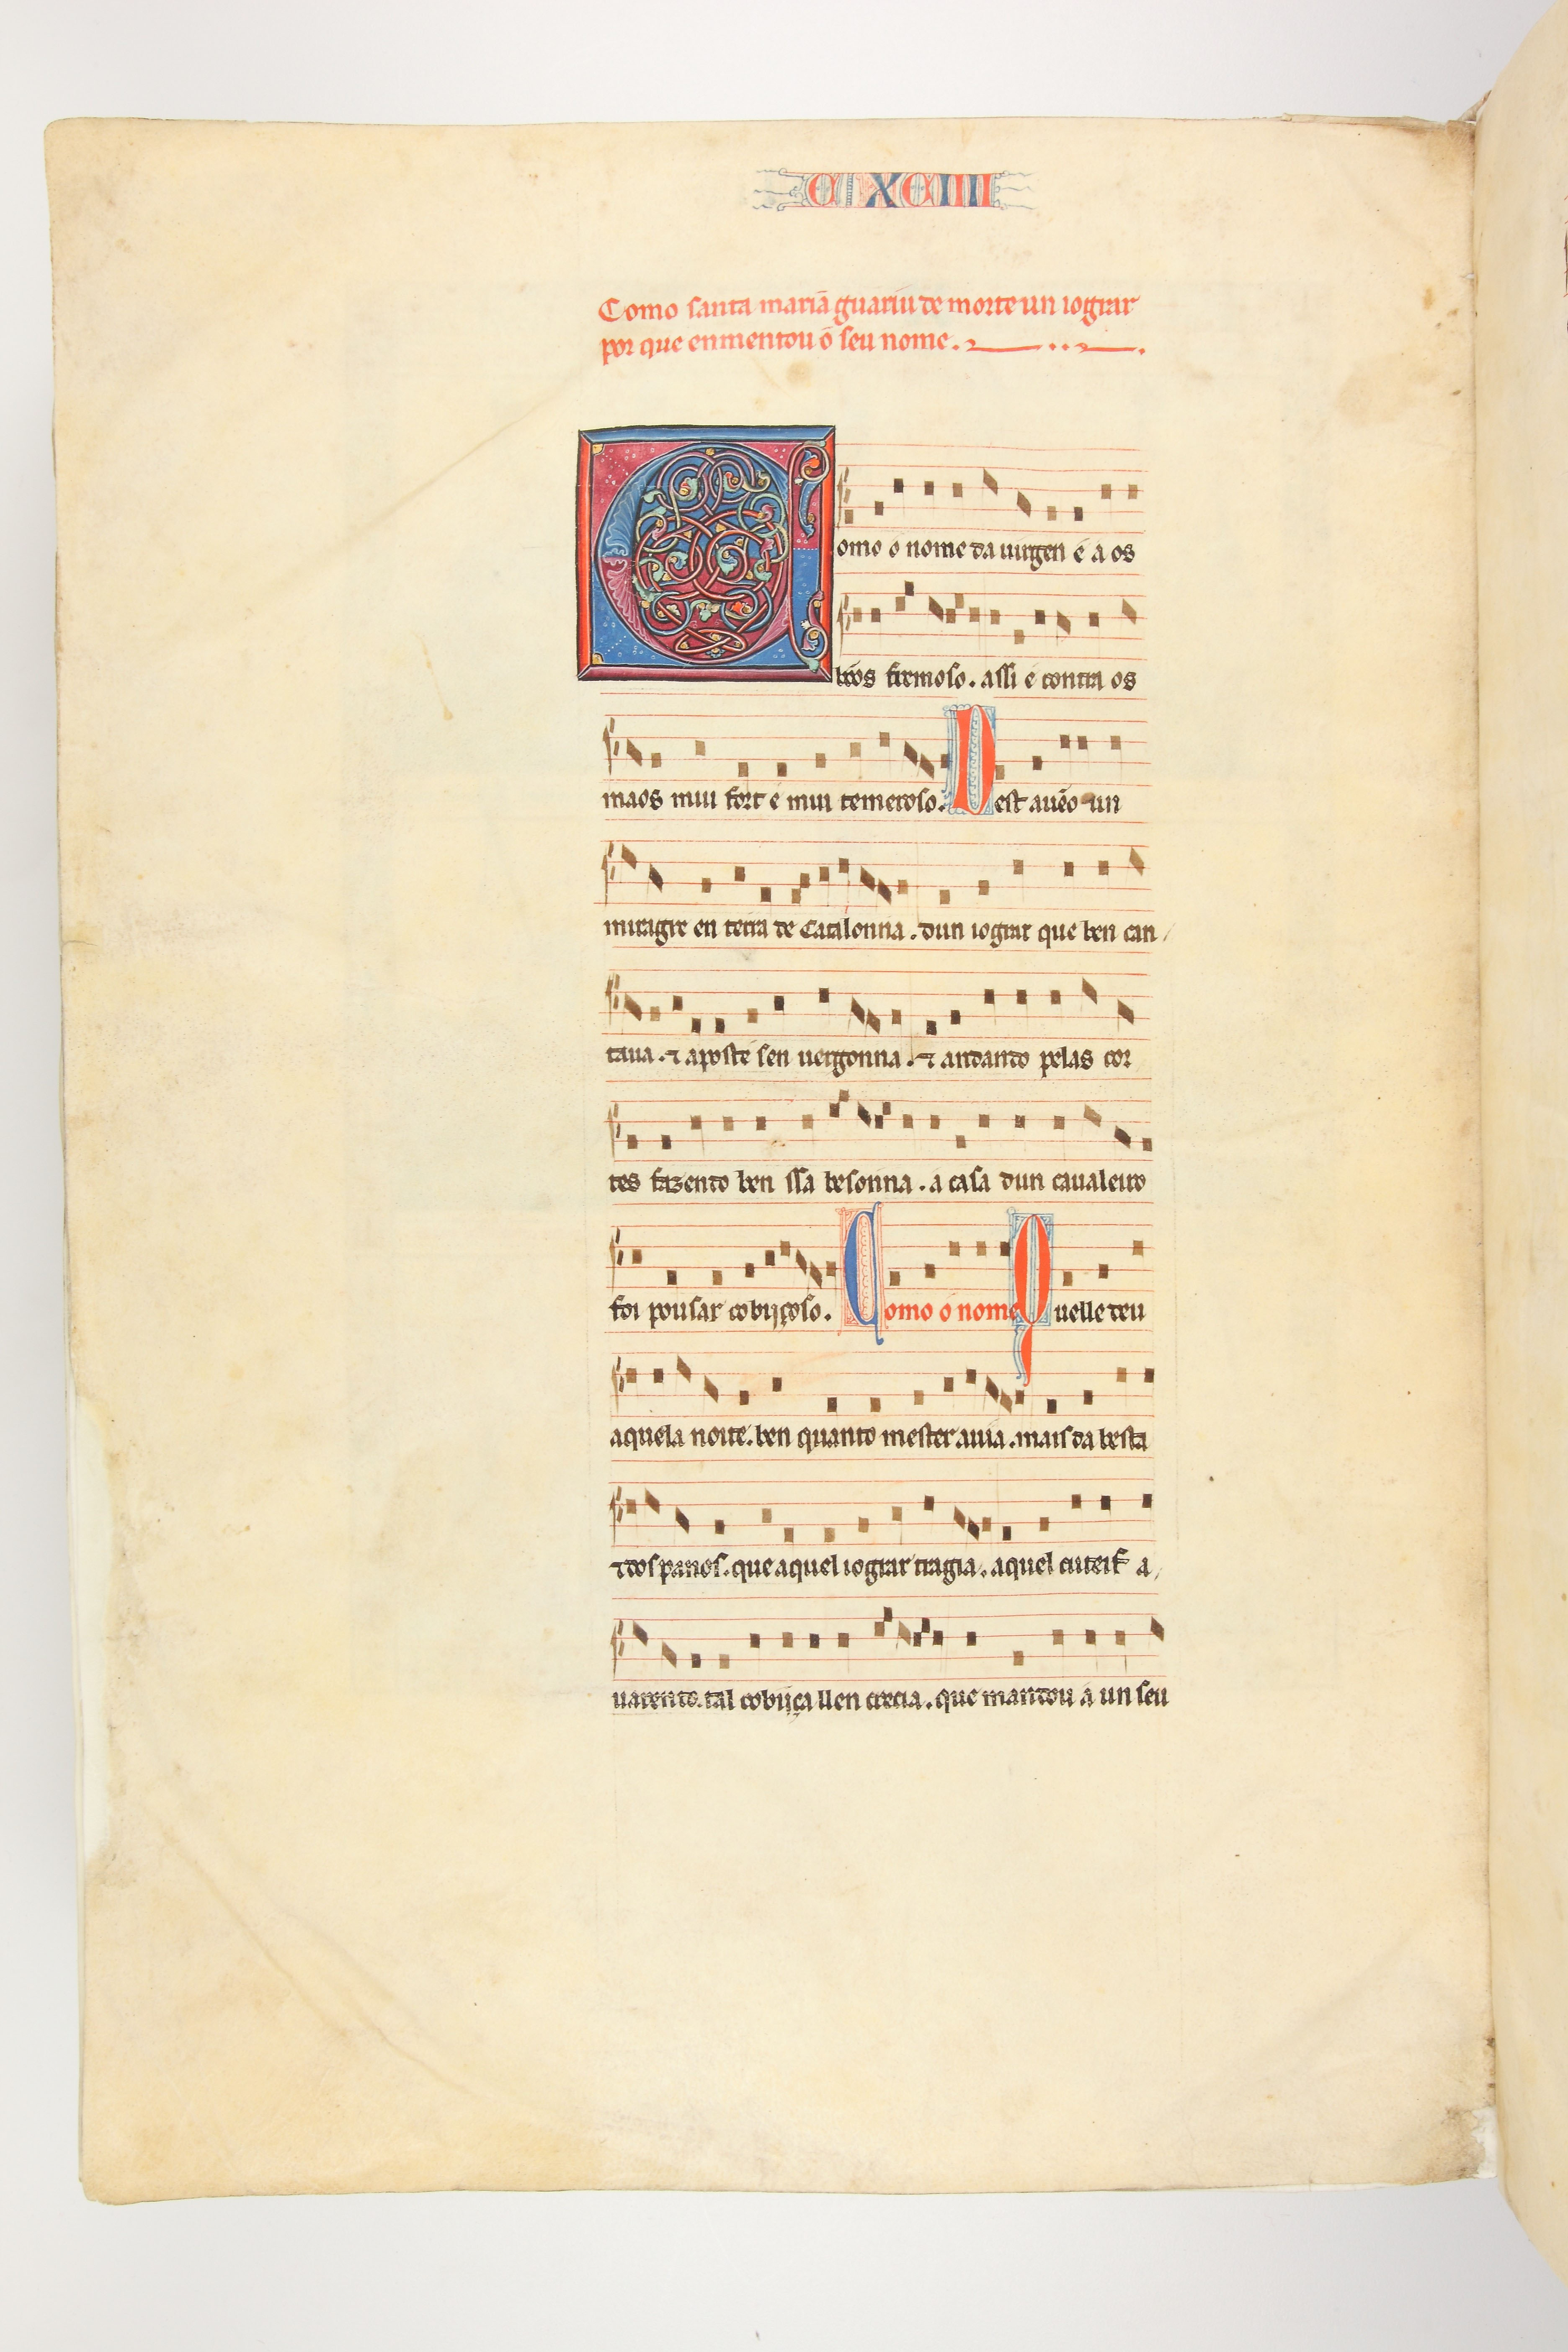 CXCIIII
Como santa mariā guariu de morte un iograr
por que enmentou ó seu nome.
Como ó nome da uirgen é a os
bõos fremoso. assi é contra os
maos mui fort é mui temeroso. Dest auẽo un
miragre en terra de Catalonna. dun iograr que ben can
taua. ⁊ aposté sen uergonna. ⁊ andando pelas cor
tes fazendo ben ssa besonna. a casa dun caualeiro
foi pousar cobijçoso. Como ó nome Quelle deu
aquela noite. ben quanto mester auia. mais da besta
⁊ dos panos. que aquel iograr tragia. aquel a
uarento. tal cobijça llen crecia. que mandou á un seu